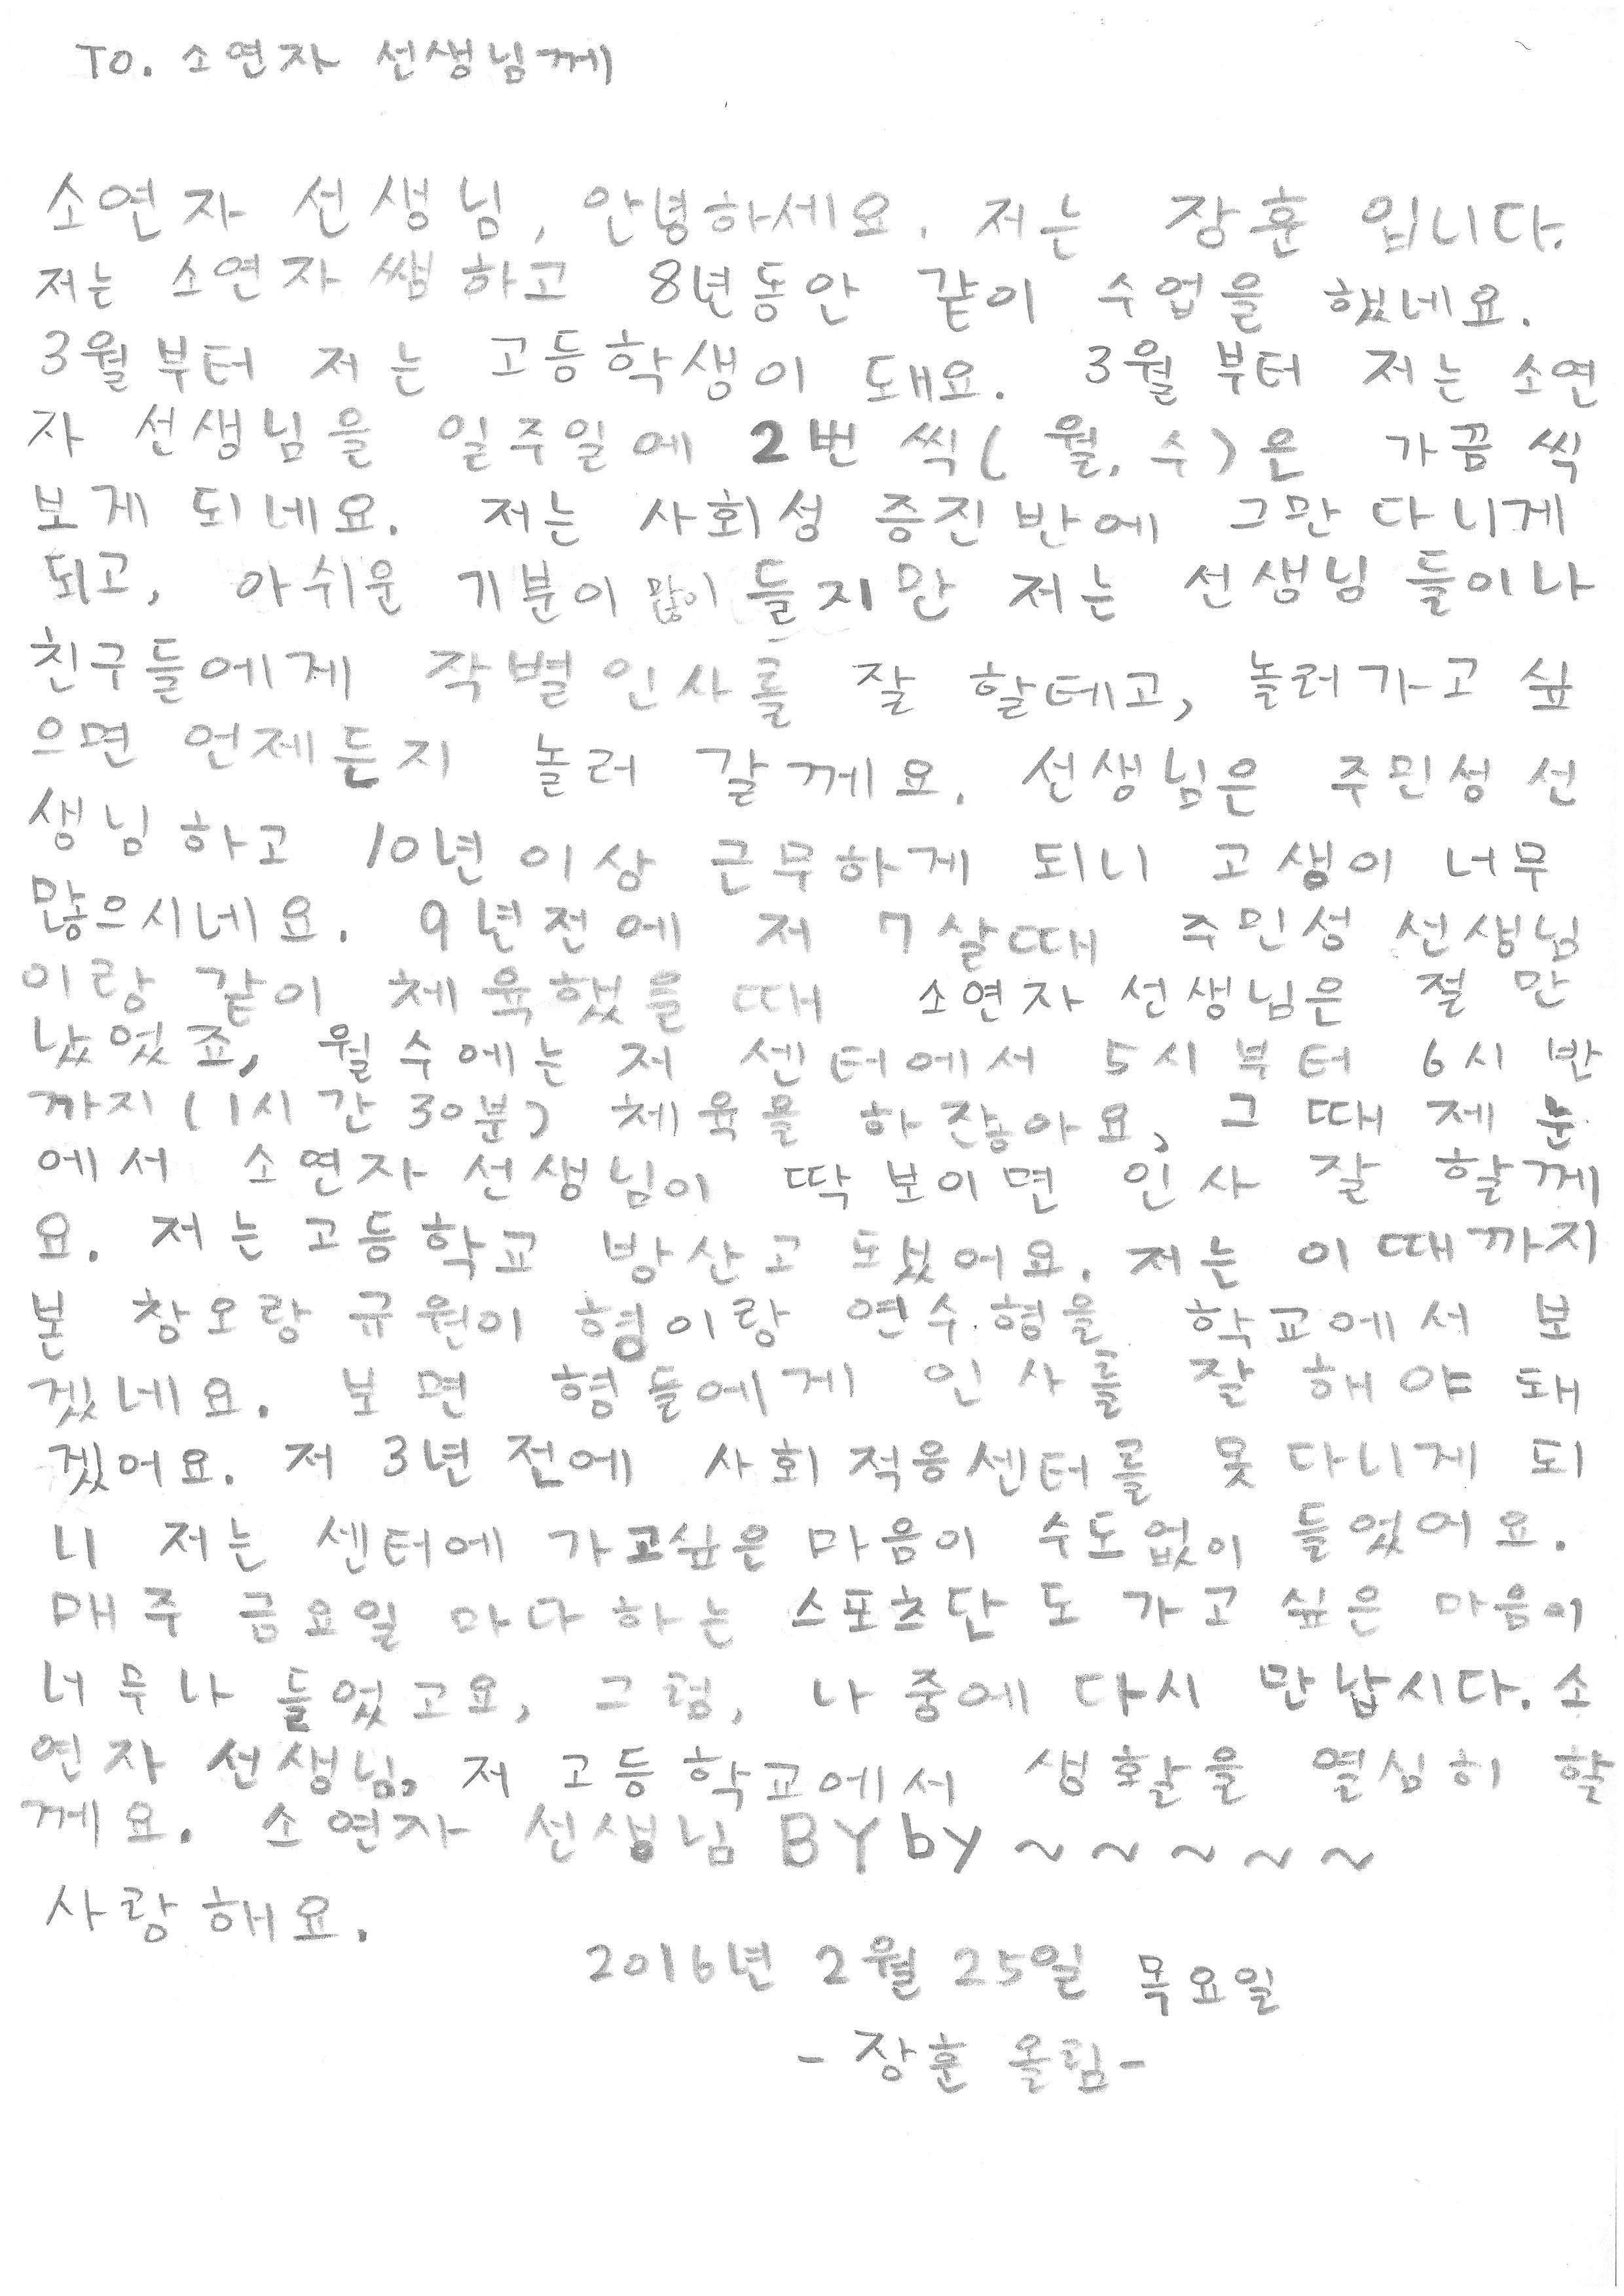 To. 소연자 선생님께
소연자 선생님, 안녕하세요. 저는 장훈 입니다.
저는 소연자 쌤하고 8년동안 같이 수업을 했네요.
3월부터 저는 고등학생이 돼요. 3월부터 저는 소연
자 선생님을 일주일에 2번 씩(월, 수)은 가끔씩
보게 되네요. 저는 사회성 증진반에 그만 다니게
되고, 아쉬운 기분이 많이 들지만 저는 선생님 들이나
친구들에게 작별인사를 잘 할테고, 놀러가고 싶
으면 언제든지 놀러 갈께요. 선생님은 주민성 선
생님하고 10년이상 근무하게 되니 고생이 너무
많으시네요. 9년전에 저 7살때 주민성 선생님
이랑 같이 체육했을 때 소연자 선생님은 절 만
났었죠, 월수에는 저 센터에서 5시부터 6시 반
까지(1시간30분) 체육을 하잖아요, 그 때 제 눈
에서 소연자 선생님이 딱 보이면 인사 잘 할께
요. 저는 고등학교 방산고 됬어요. 저는 이때까지
본 창오랑 규원이 형이랑 연수형을 학교에서 보
겠네요. 보면 형들에게 인사를 잘 해야 돼
겠어요. 저 3년 전에 사회적응센터를 못 다니게 되
니 저는 센터에 가고싶은 마음이 수도없이 들었어요.
매주 금요일 마다 하는 스포츠단도 가고 싶은 마음이
너무나 들었고요, 그럼, 나중에 다시 만납시다. 소
연자 선생님, 저 고등학교에서 생활을 열심히 할
께요. 소연자 선생님 BYby~~~~~
사랑해요.
2016년 2월 25일 목요일
- 장훈 올림-